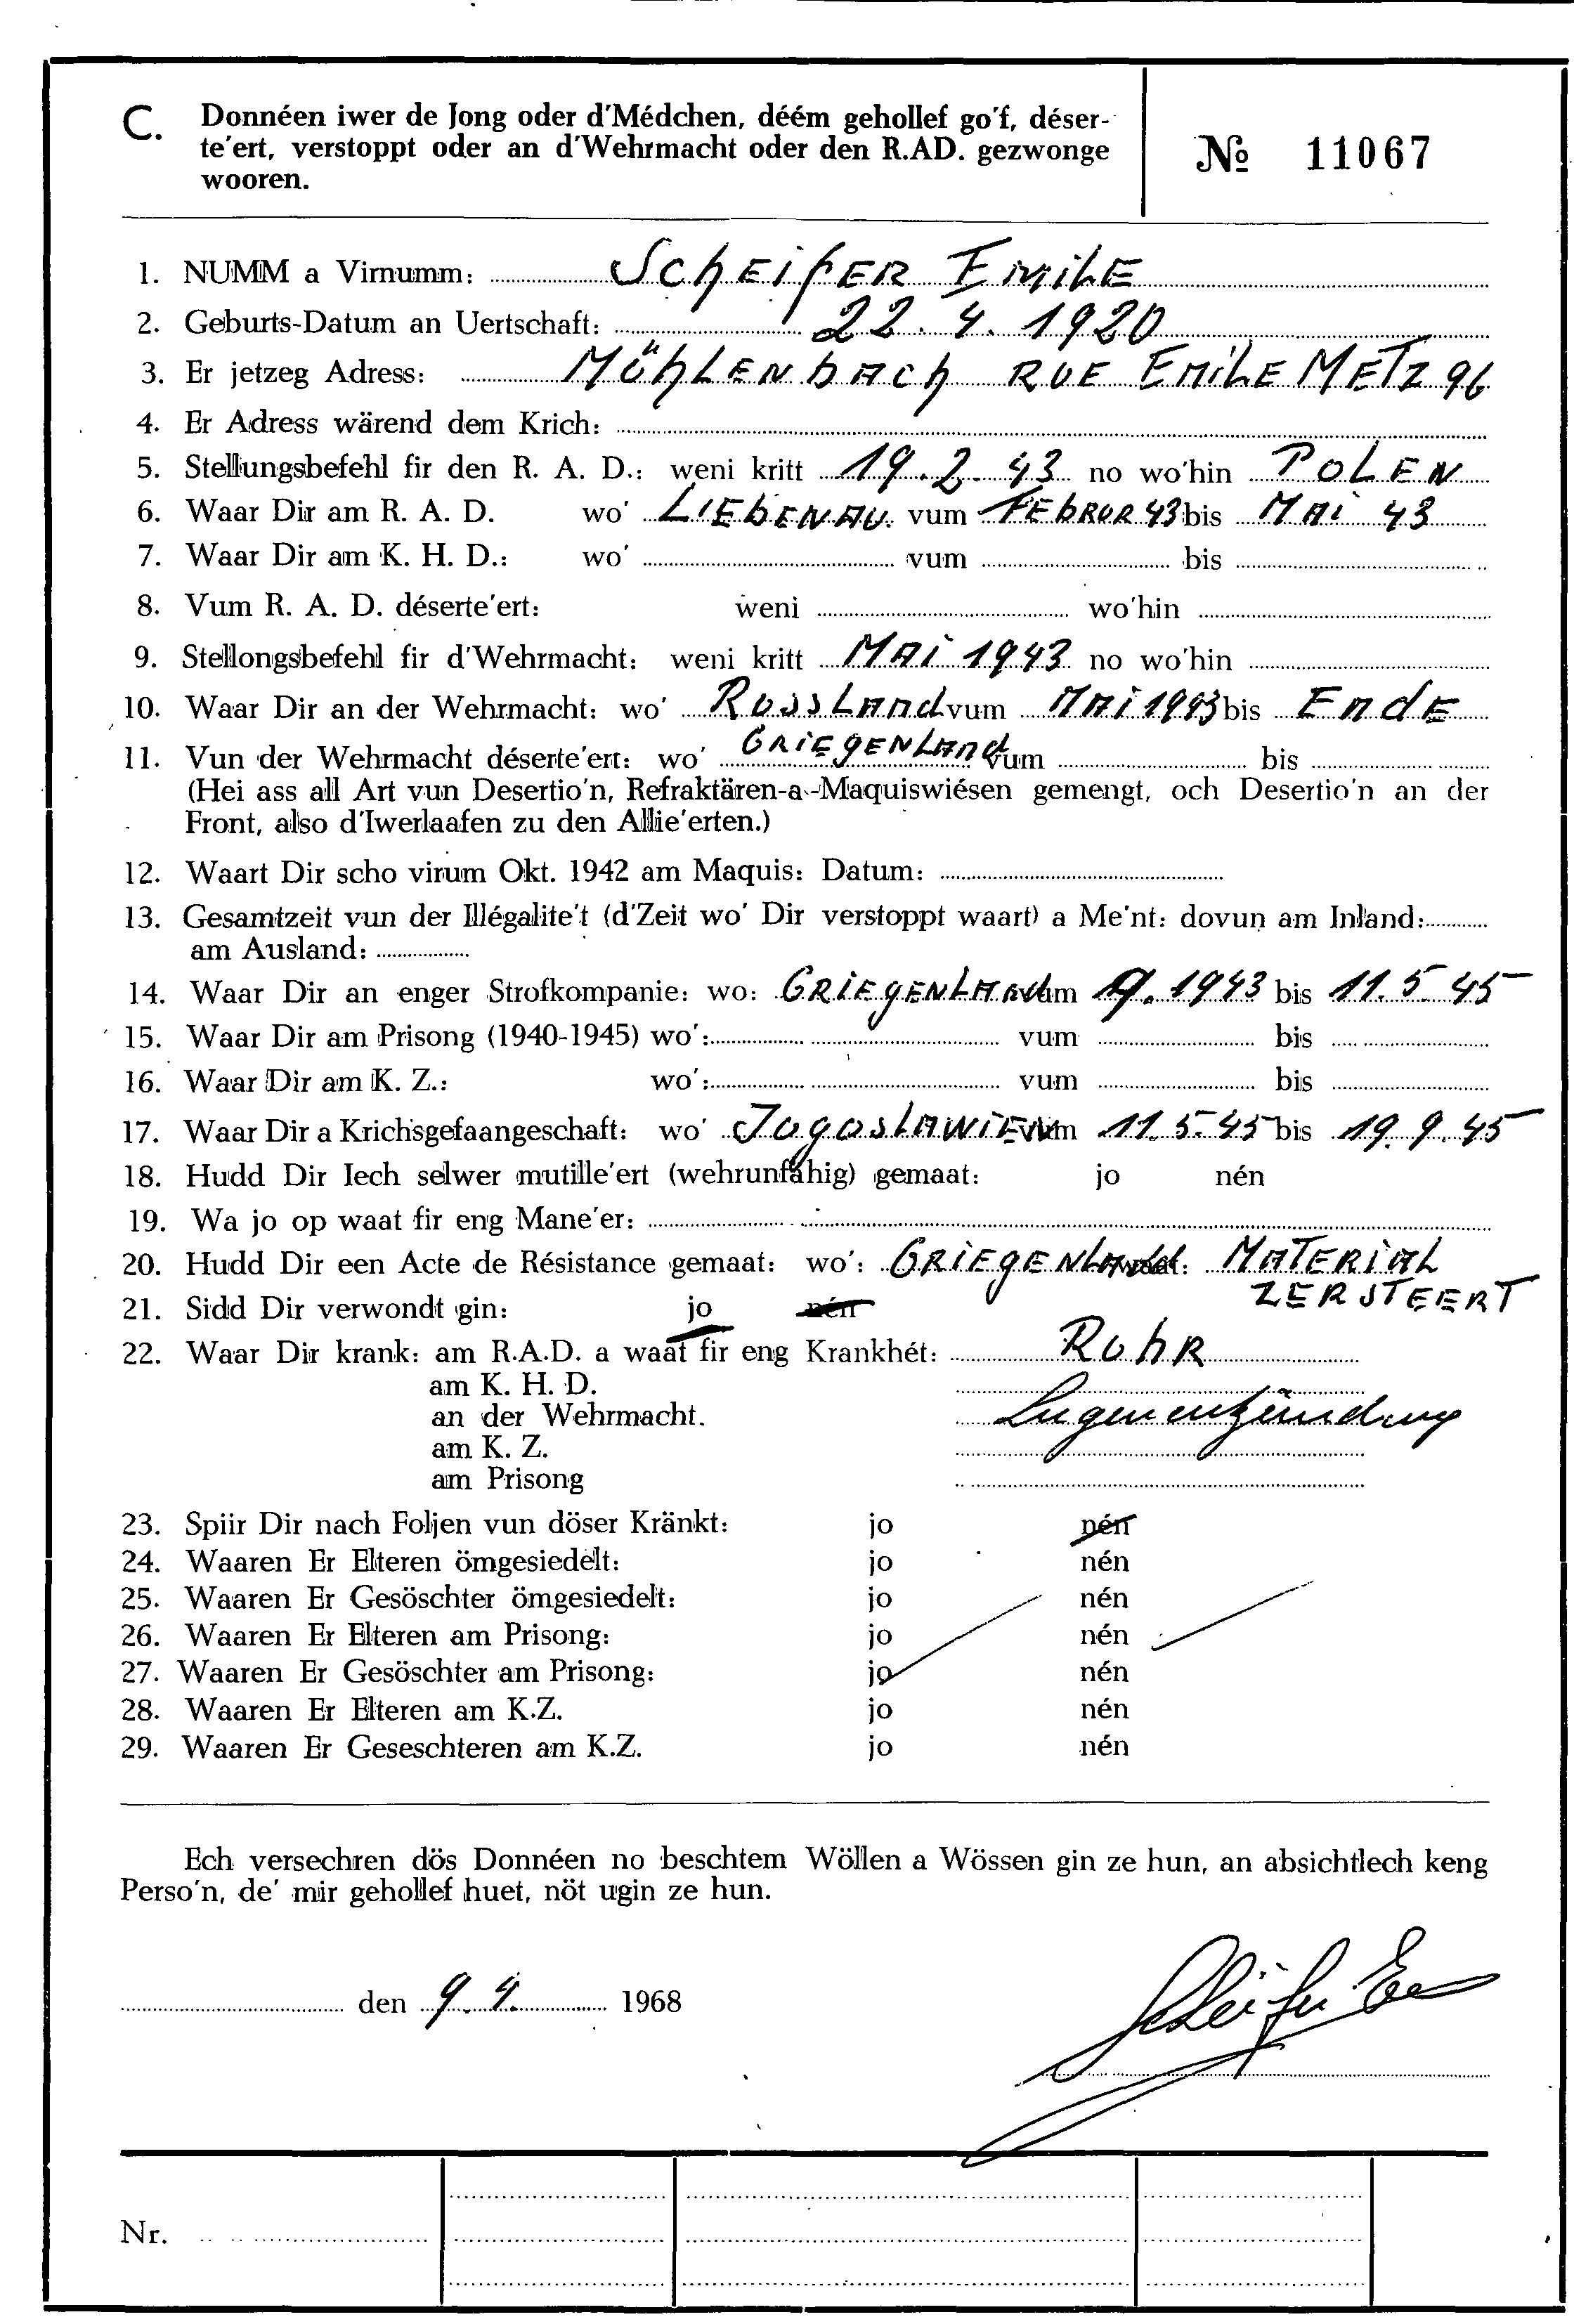 C. Donnéen iwer de Jong oder d'Médchen, déém gehollef go'f, déser-
te'ert, verstoppt oder an d'Wehrmacht oder den R.AD. gezwonge
wooren.
№ 11067
1. NUMM a Virnumm: ScheifER EmiLE
2. Geburts-Datum an Uertschaft: 22. 4. 1920
3. Er jetzeg Adress: MÜhLENbACh RUE EmiLE METZ 96
4. Er Adress wärend dem Krich:
5. Stellungsbefehl fir den R. A. D.: weni kritt 19.2.43 no wo'hin POLEN
6. Waar Dir am R. A. D. wo' LIEbENAU vum FEbRUR 43 bis MAi 43
7. Waar Dir am K. H. D.: wo' vum bis
8. Vum R. A. D. déserte'ert: weni wo'hin
9. Stellongsbefehl fir d'Wehrmacht: weni kritt MAi 1943 no wo'hin
10. Waar Dir an der Wehrmacht: wo' RussLAnd vum MAi 1943 bis EndE
11. Vun der Wehrmacht déserte'ert: wo' GRiEgENLAnd vum bis
(Hei ass all Art vun Desertio'n, Refraktären-a-Maquiswiésen gemengt, och Desertio'n an der
Front, also d'Iwerlaafen zu den Allie'erten.)
12. Waart Dir scho virum Okt. 1942 am Maquis: Datum:
13. Gesamtzeit vun der Illégalite't (d'Zeit wo' Dir verstoppt waart) a Me'nt: dovun am Inland:
am Ausland:
14. Waar Dir an enger Strofkompanie: wo: GRiEgENLAnd vum 9. 1943 bis 11. 5. 45
15. Waar Dir am Prisong (1940-1945) wo': vum bis
16. Waar Dir am K. Z.: wo': vum bis
17. Waar Dir a Krichsgefaangeschaft: wo' JugosLAWiEN vum 11. 5. 45 bis 19. 9. 45
18. Hudd Dir Iech selwer mutille'ert (wehrunfähig) gemaat: jo nén
19. Wa jo op waat fir eng Mane'er:
20. Hudd Dir een Acte de Résistance gemaat: wo': GRiEgENLAnd waat: MATERiAL
ZERSTEERT
21. Sidd Dir verwondt gin: jo nén
22. Waar Dir krank: am R.A.D. a waat fir eng Krankhét: RuhR
am K. H. D.
an der Wehrmacht. Lugenentzündung
am K. Z.
am Prisong
23. Spiir Dir nach Foljen vun döser Kränkt: jo nén
24. Waaren Er Elteren ömgesiedelt: jo nén
25. Waaren Er Gesöschter ömgesiedelt: jo nén
26. Waaren Er Elteren am Prisong: jo nén
27. Waaren Er Gesöschter am Prisong: jo nén
28. Waaren Er Elteren am K.Z. jo nén
29. Waaren Er Geseschteren am K.Z. jo nén
Ech versechren dös Donnéen no beschtem Wöllen a Wössen gin ze hun, an absichtlech keng
Perso'n, de' mir gehollef huet, nöt ugin ze hun.
den 9. 4. 1968
Scheifer
Nr.